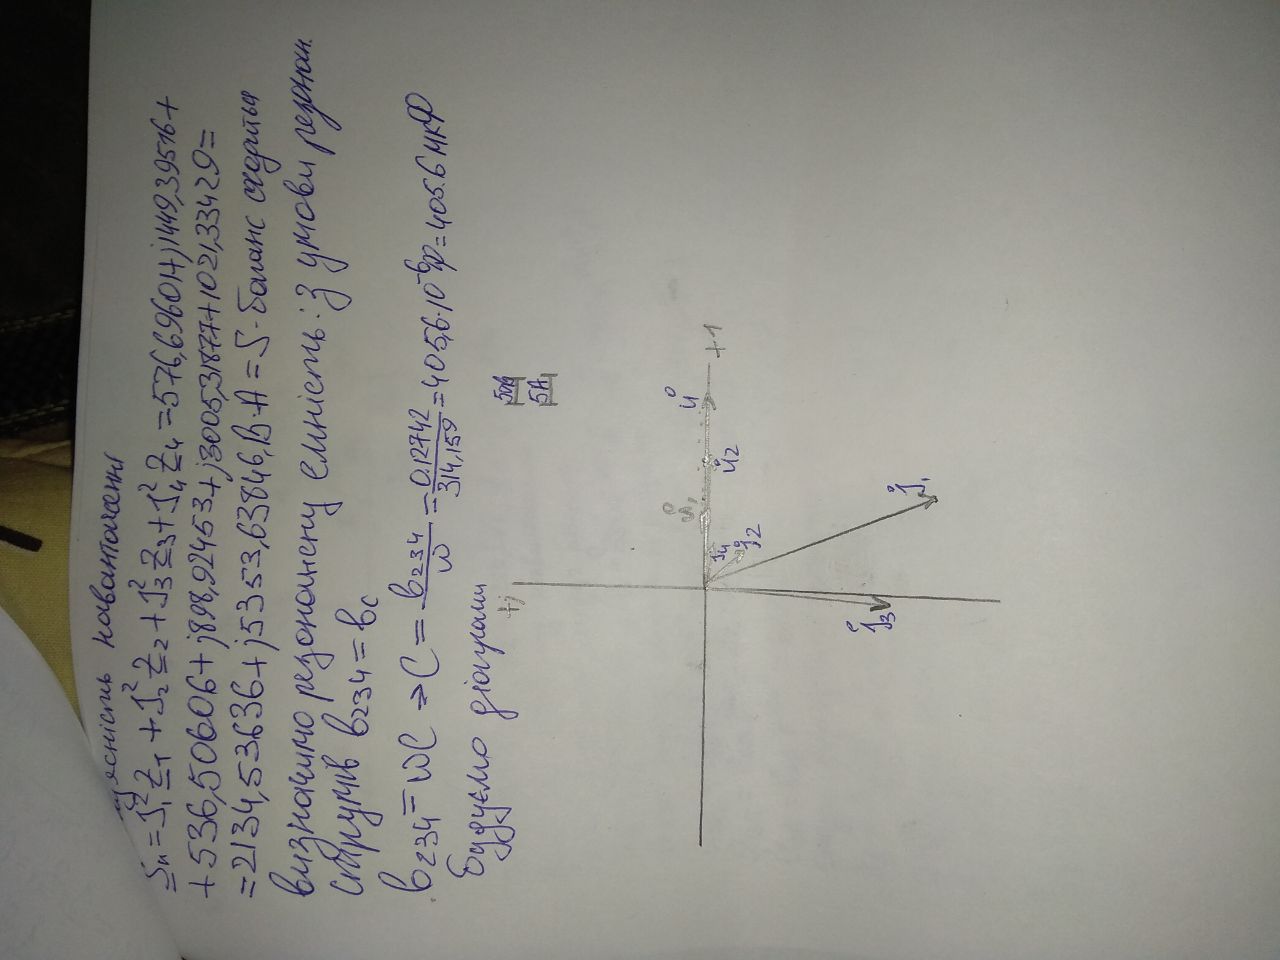 потужність навантаження
Sн = I₁²Z₁ + I₂²Z₂ + I₃²Z₃ + I₄²Z₄ = 576,69601 + j1449,39516 +
+ 536,50606 + j898,92453 + j3005,31877 + 1021,33429 =
= 2134,53636 + j5353,63846, В·А = S - баланс сходиться
визначимо резонансну ємність: з умови резонан.
струмів b₂₃₄ = bc
b₂₃₄ = ωC ⇒ C = b₂₃₄/ω = 0.12742/314,159 = 405,6·10⁻⁶ Ф = 405.6 мкФ
Будуємо діаграми
50В
5А
+j
+1
U̇₁
U̇₂
U̇
İ₄
İ₂
İ₁
İ₃